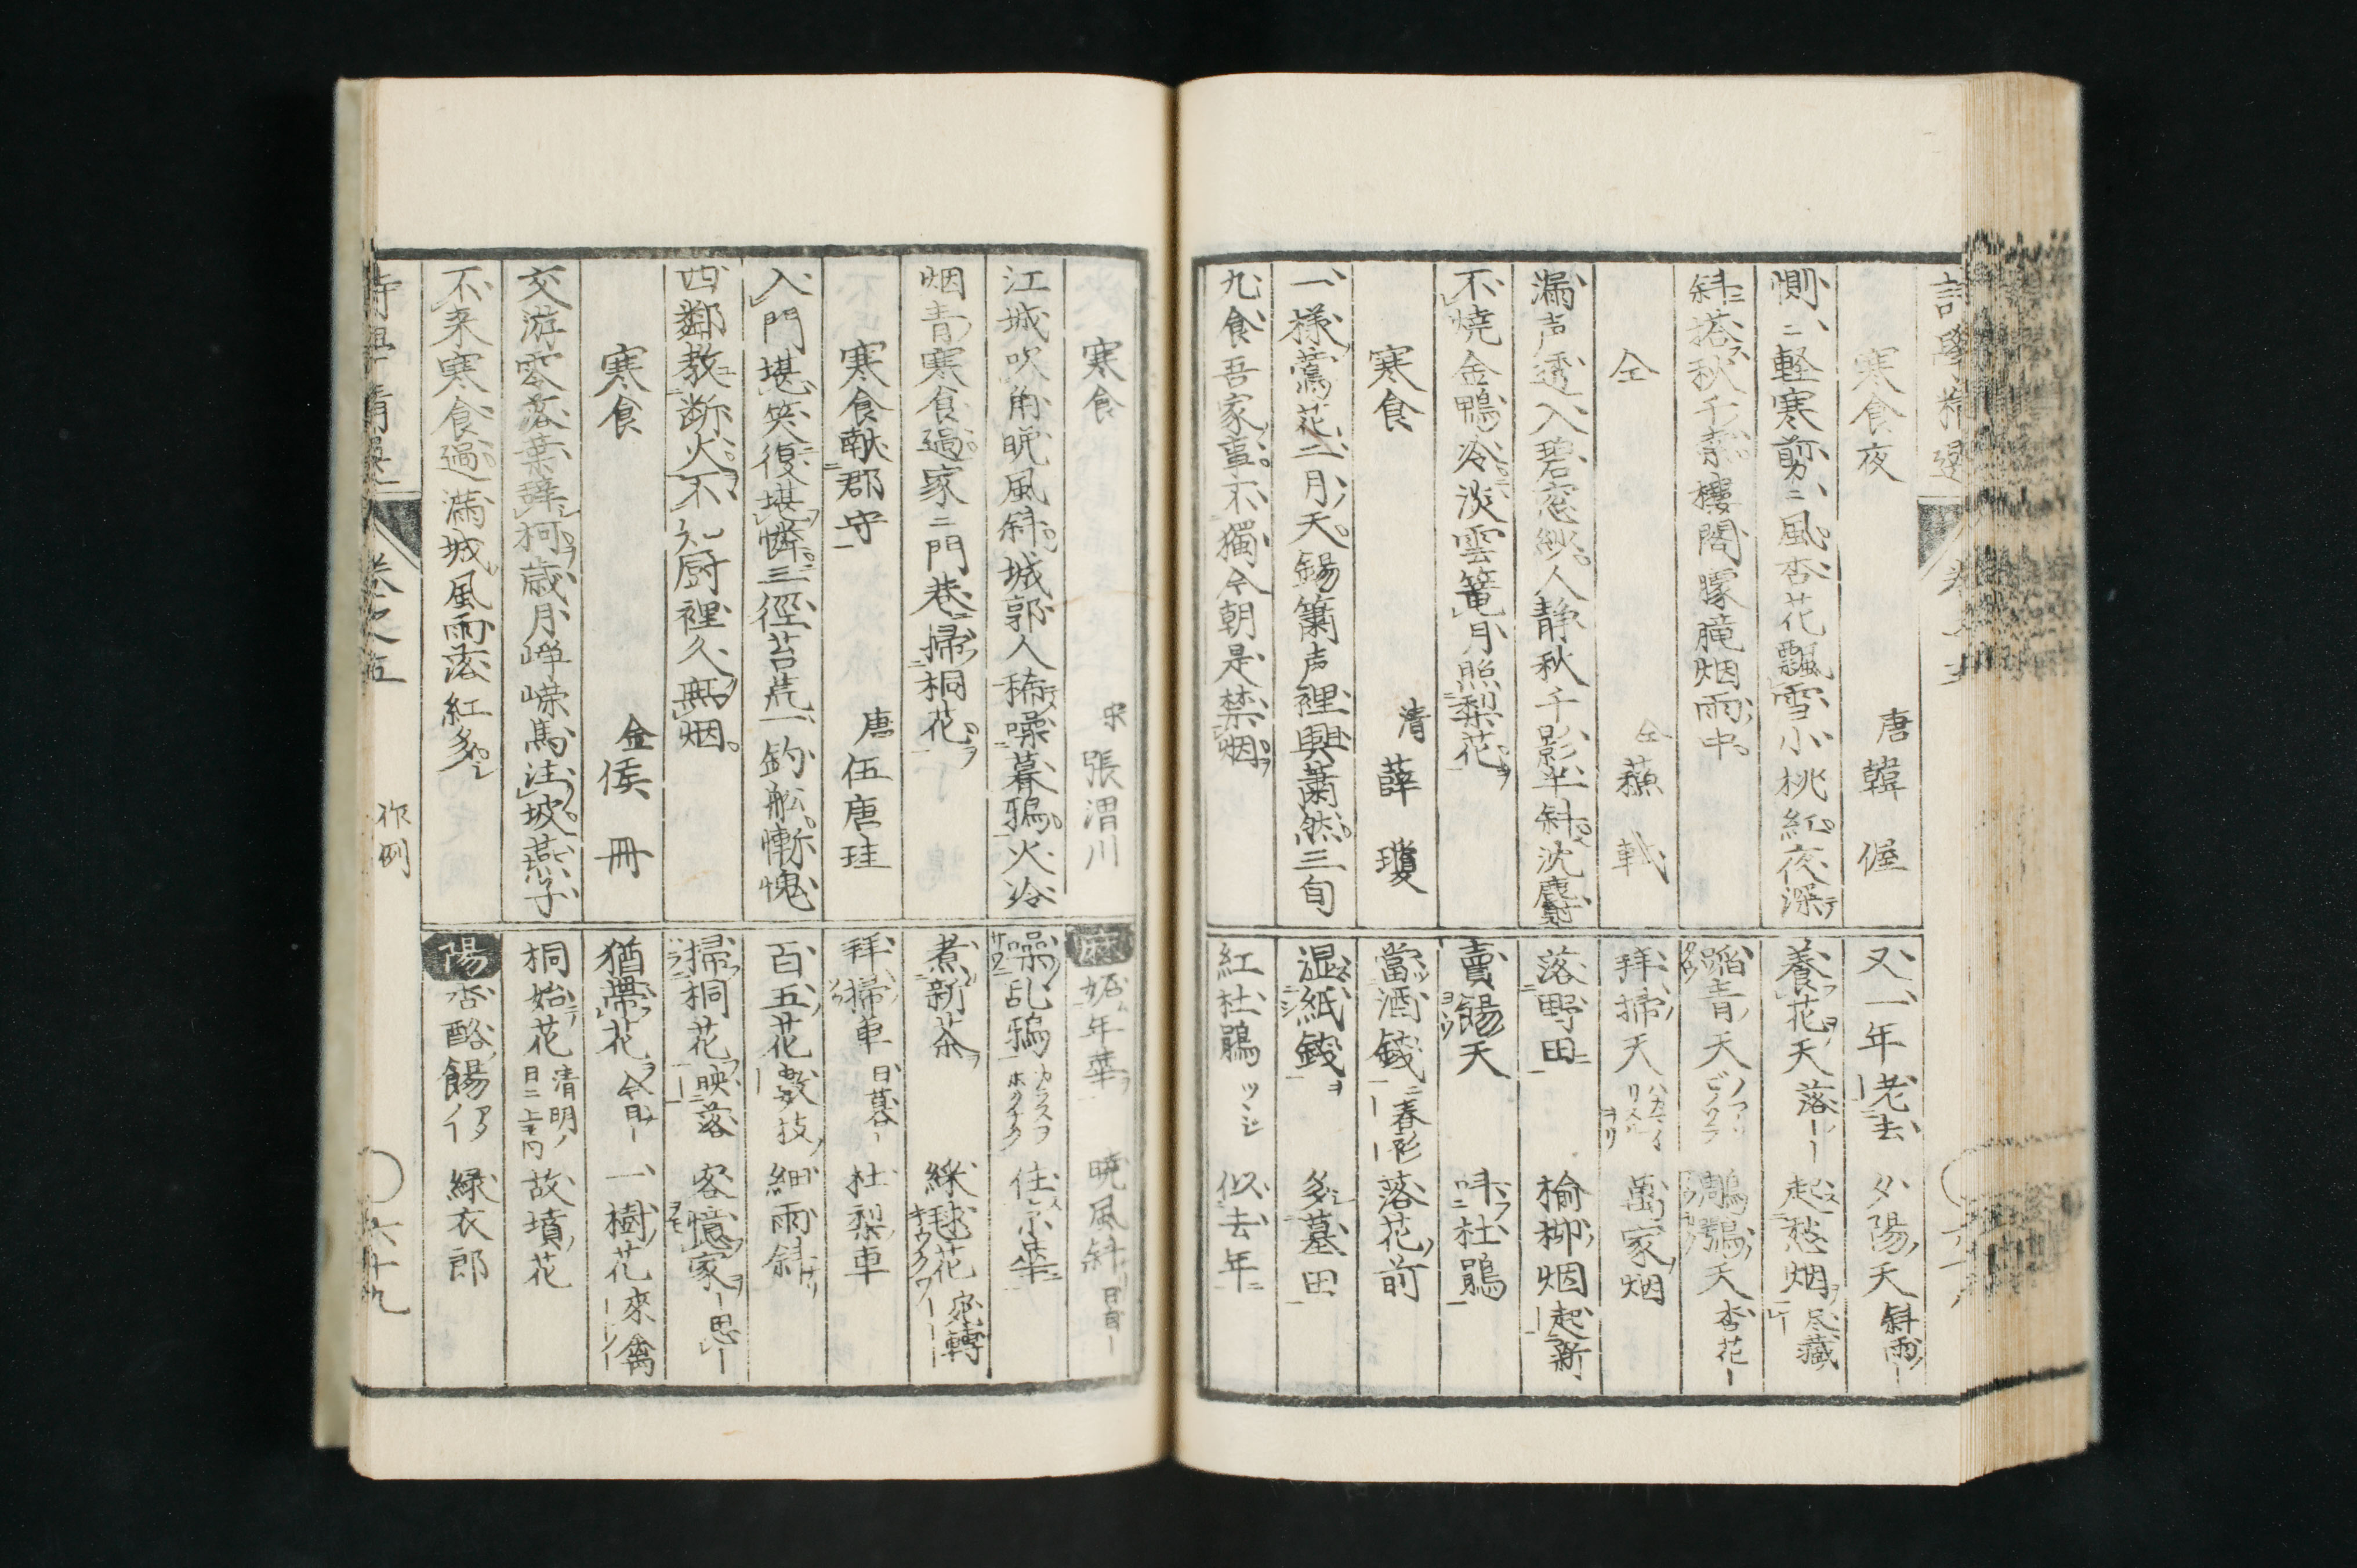 寒食夜 唐 韓偓
惻ニ軽寒剪ニ風杏花飄雪小桃紅夜深
斜搭秋千索樓閣朦朧烟雨中
仝 仝 蘓軾
漏声透入碧窓紗人静秋千影半斜沈麝
不焼金鴨冷淡雲篭月照梨花
寒食 清 薛瓊
一様鶯花二月天錫簫声裡興蕭然三旬
九食吾家事不獨今朝是禁烟
又一年 老去 夕陽天 斜雨
養花天 落 起愁烟 尽藏
蹈青天 鷓鴣天 杏花
拝掃天 萬家烟
落野田 榆柳烟 起新
賣餳天 叫杜鵑
當酒錢 春彩 落花前
湿紙錢 多墓田
紅杜鵑 似去年
寒食 宋 張渭川
江城吹角晩風斜城郭人稀噪暮鴉火冷
烟青寒食過家ニ門巷掃桐花
寒食献郡守 唐 伍唐珪
入門堪笑復堪憐三徑苔荒一釣舩慚愧
四鄰教断火不知厨裡久無烟
寒食 金 侯冊
交游零落葉辞柯歳月崢嶸馬注坡燕子
不来寒食過満城風雨落紅多
麻 妬年華 暁風斜
噪乱鴉 カラスヲホクナク 住京華
煮新茶 綵毬花 宛轉
拝掃車 日暮 杜梨車
百五花 数技 細雨斜
掃桐花 映落 客憶家 思
猶帯花 今日 一樹花 來禽
桐始花 清明ノ日ニ 故墳花
陽 杏酪餳 緑衣郎
卷之五 作例 六十九